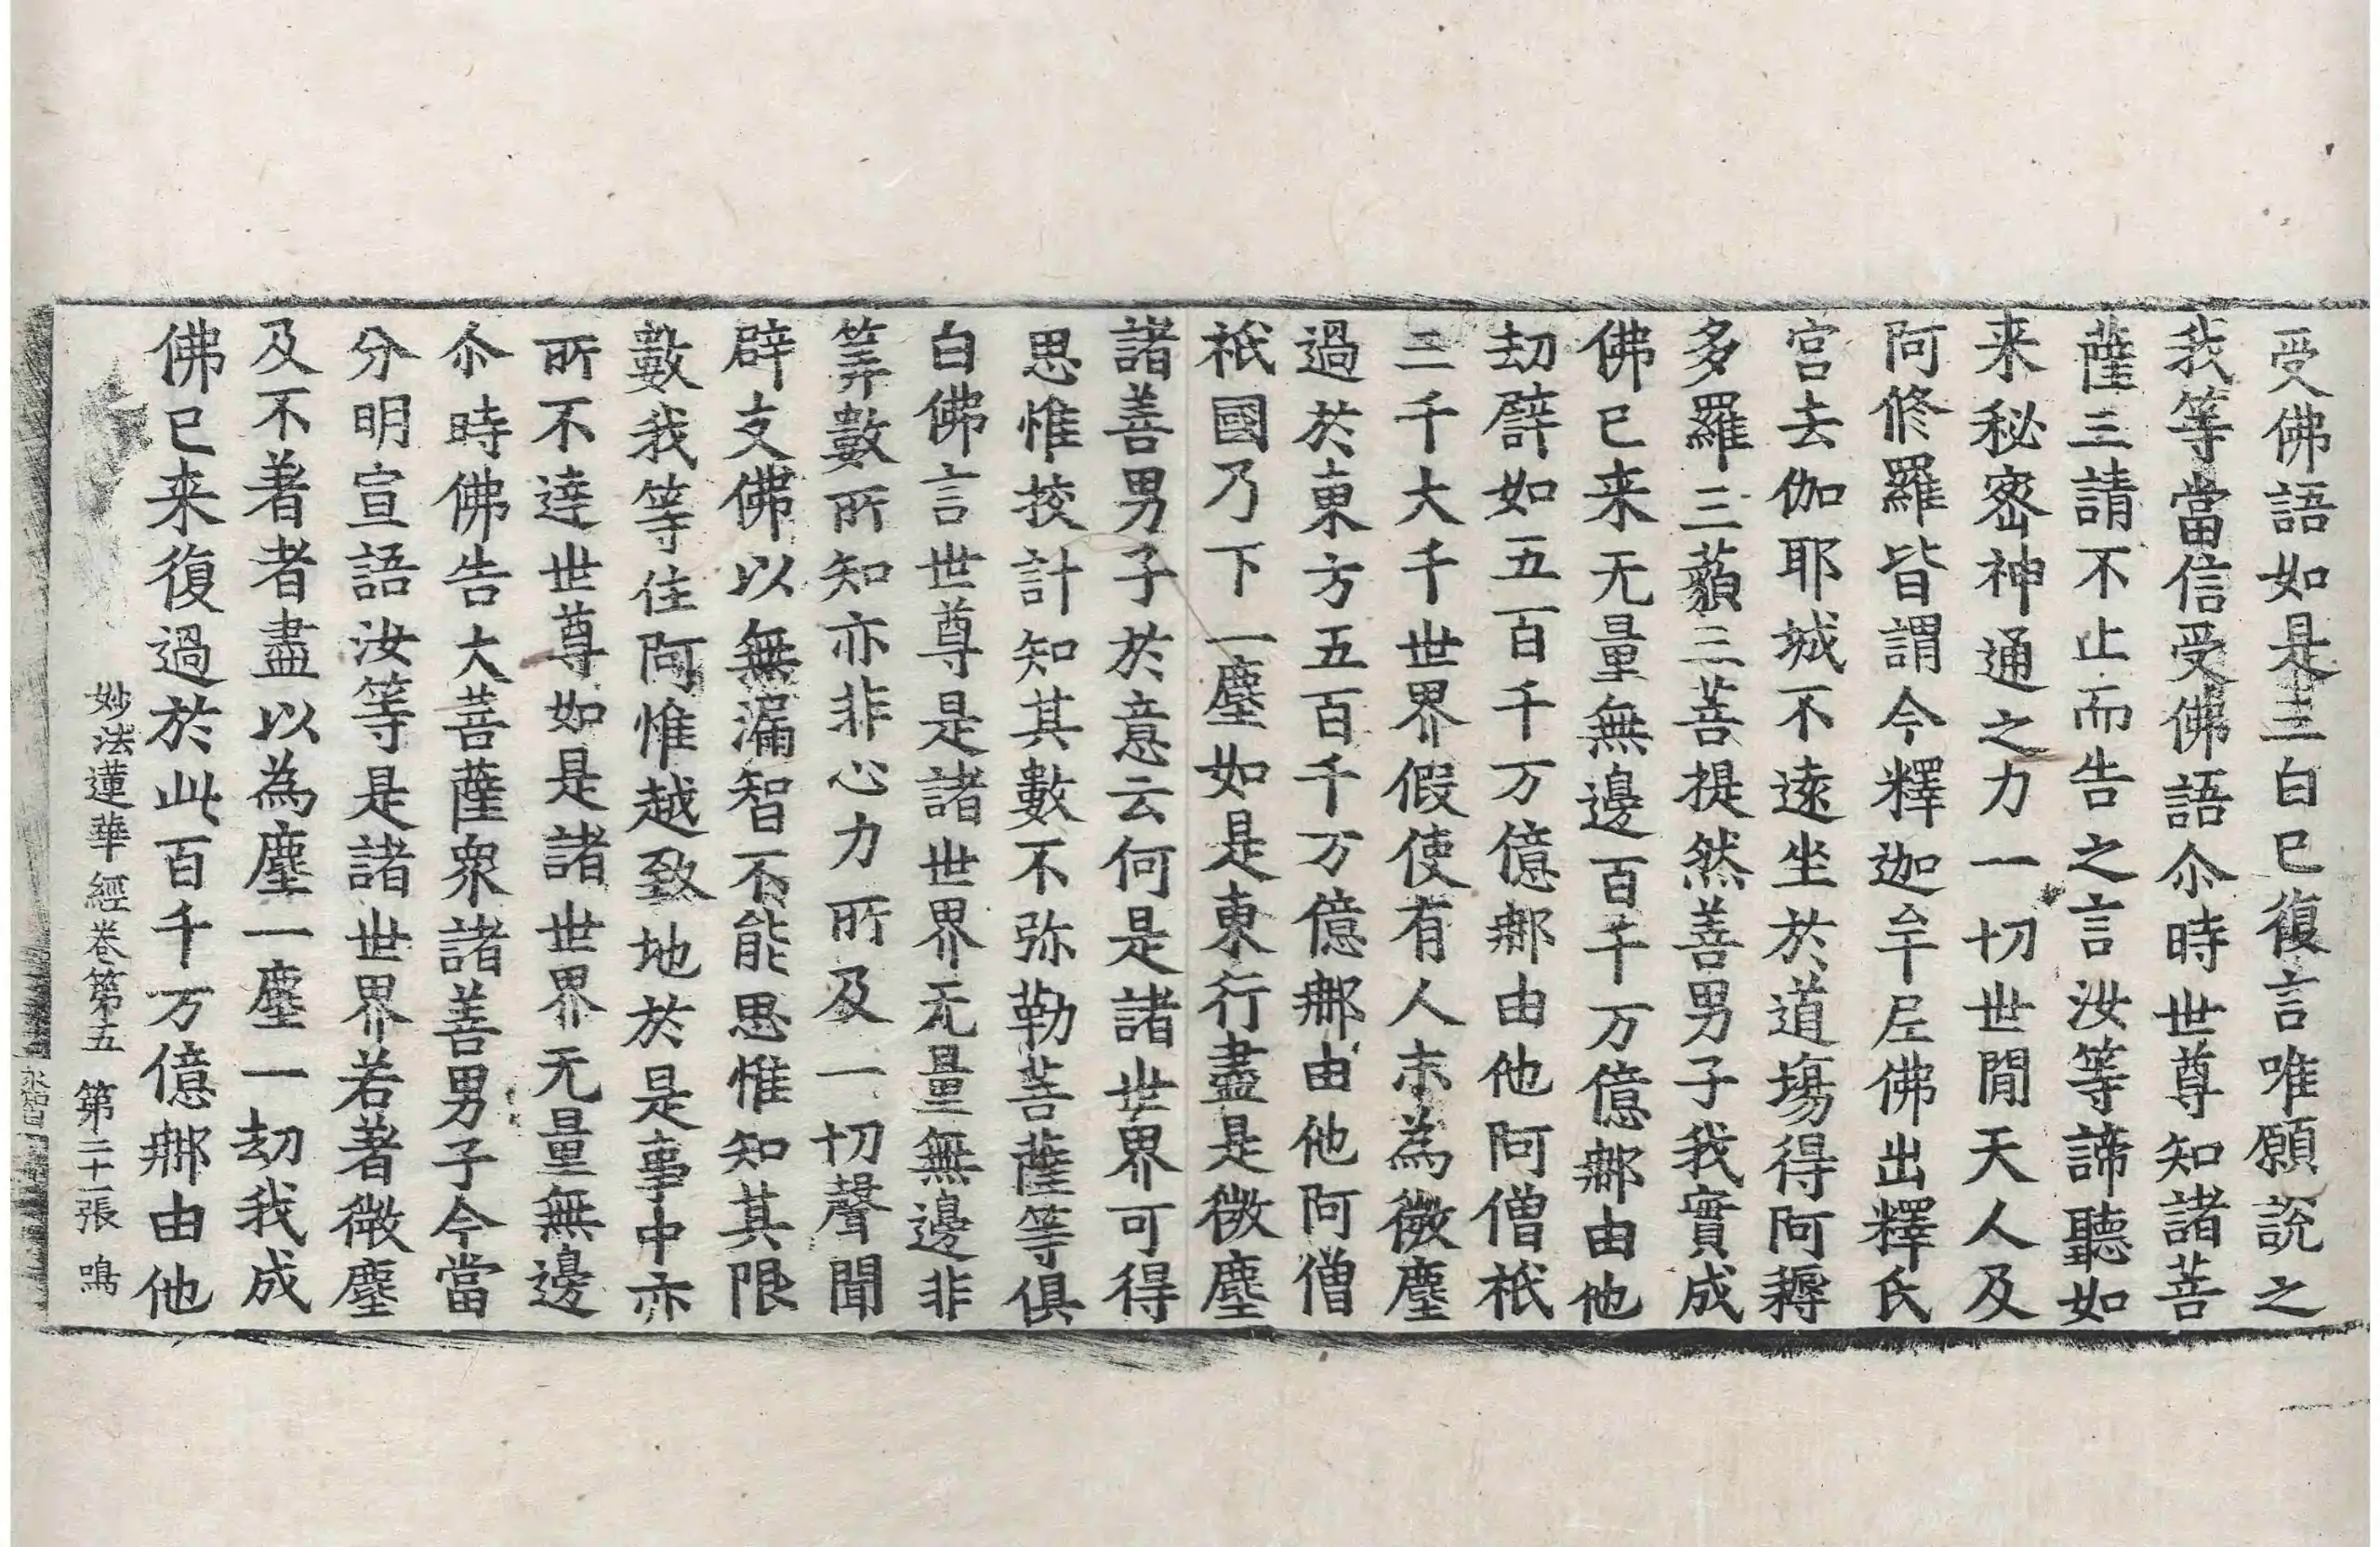 受佛語如是三白已復言唯願說之
我等當信受佛語尒時世尊知諸菩
薩三請不止而告之言汝等諦聽如
来秘密神通之力一切世閒天人及
阿修羅皆謂今釋迦牟尼佛出釋氏
宮去伽耶城不遠坐於道場得阿耨
多羅三藐三菩提然善男子我實成
佛已来无量無邊百千万億郍由他
劫譬如五百千万億郍由他阿僧祇
三千大千世界假使有人末為微塵
過於東方五百千万億郍由他阿僧
祇國乃下一塵如是東行盡是微塵
諸善男子於意云何是諸世界可得
思惟挍計知其數不弥勒菩薩等俱
白佛言世尊是諸世界无量無邊非
筭數所知亦非心力所及一切聲聞
辟支佛以無漏智不能思惟知其限
數我等住阿惟越致地於是事中亦
所不達世尊如是諸世界无量無邊
尒時佛告大菩薩衆諸善男子今當
分明宣語汝等是諸世界若著微塵
及不著者盡以為塵一塵一劫我成
佛已来復過於此百千万億郍由他
妙法蓮華經卷第五 第二十一張 鳴